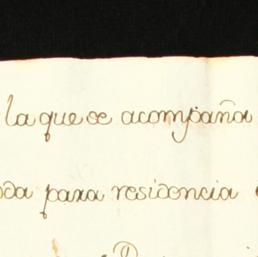 la que se acompaña
para residencia